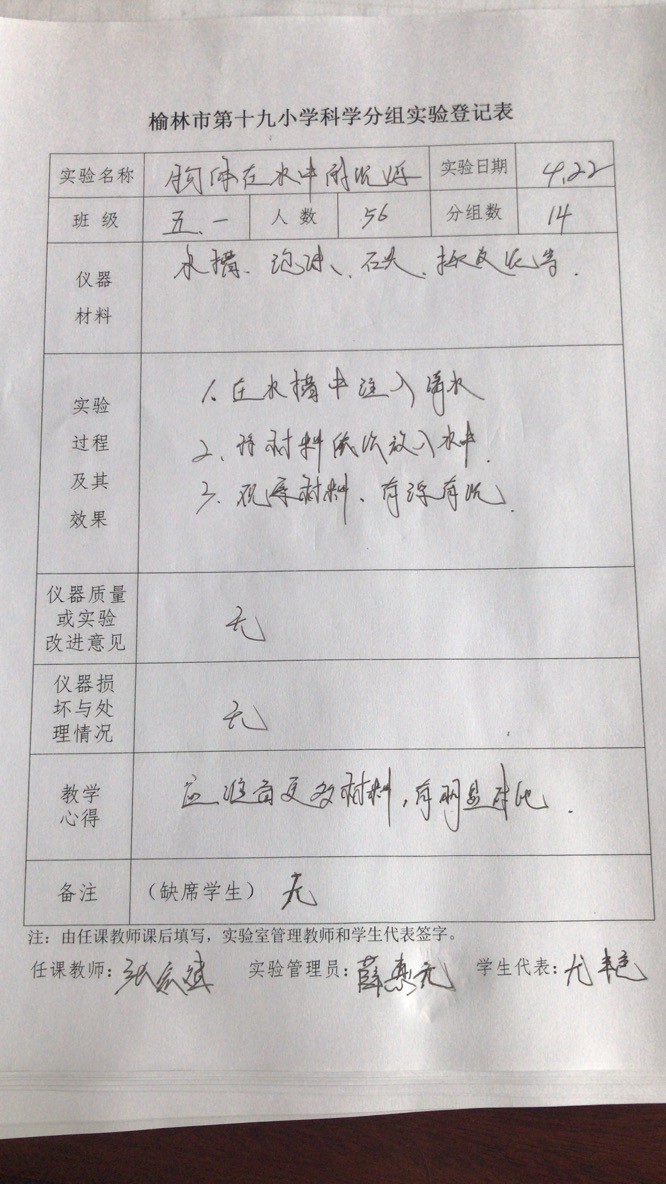 榆林市第十九小学科学分组实验登记表
实验名称 物体在水中的沉浮 实验日期 4.22
班级 五.一 人数 56 分组数 14
仪器材料 水槽、泡沫、石头、橡皮泥等.
实验过程及其效果
1、在水槽中注入清水
2、将材料依次放入水中.
3、观察材料、有浮有沉.
仪器质量
或实验
改进意见
无
仪器损
坏与处
理情况
无
教学心得 应准备更多材料,有明显对比.
备注 (缺席学生) 无
注:由任课教师课后填写,实验室管理教师和学生代表签字。
任课教师: 实验管理员: 学生代表: